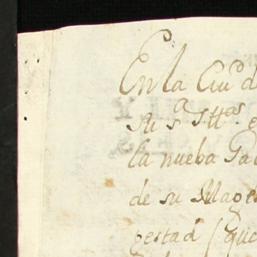 En la Ciud d
su sa Sttas e
la nueba Ga
de su Mages
gestad (que